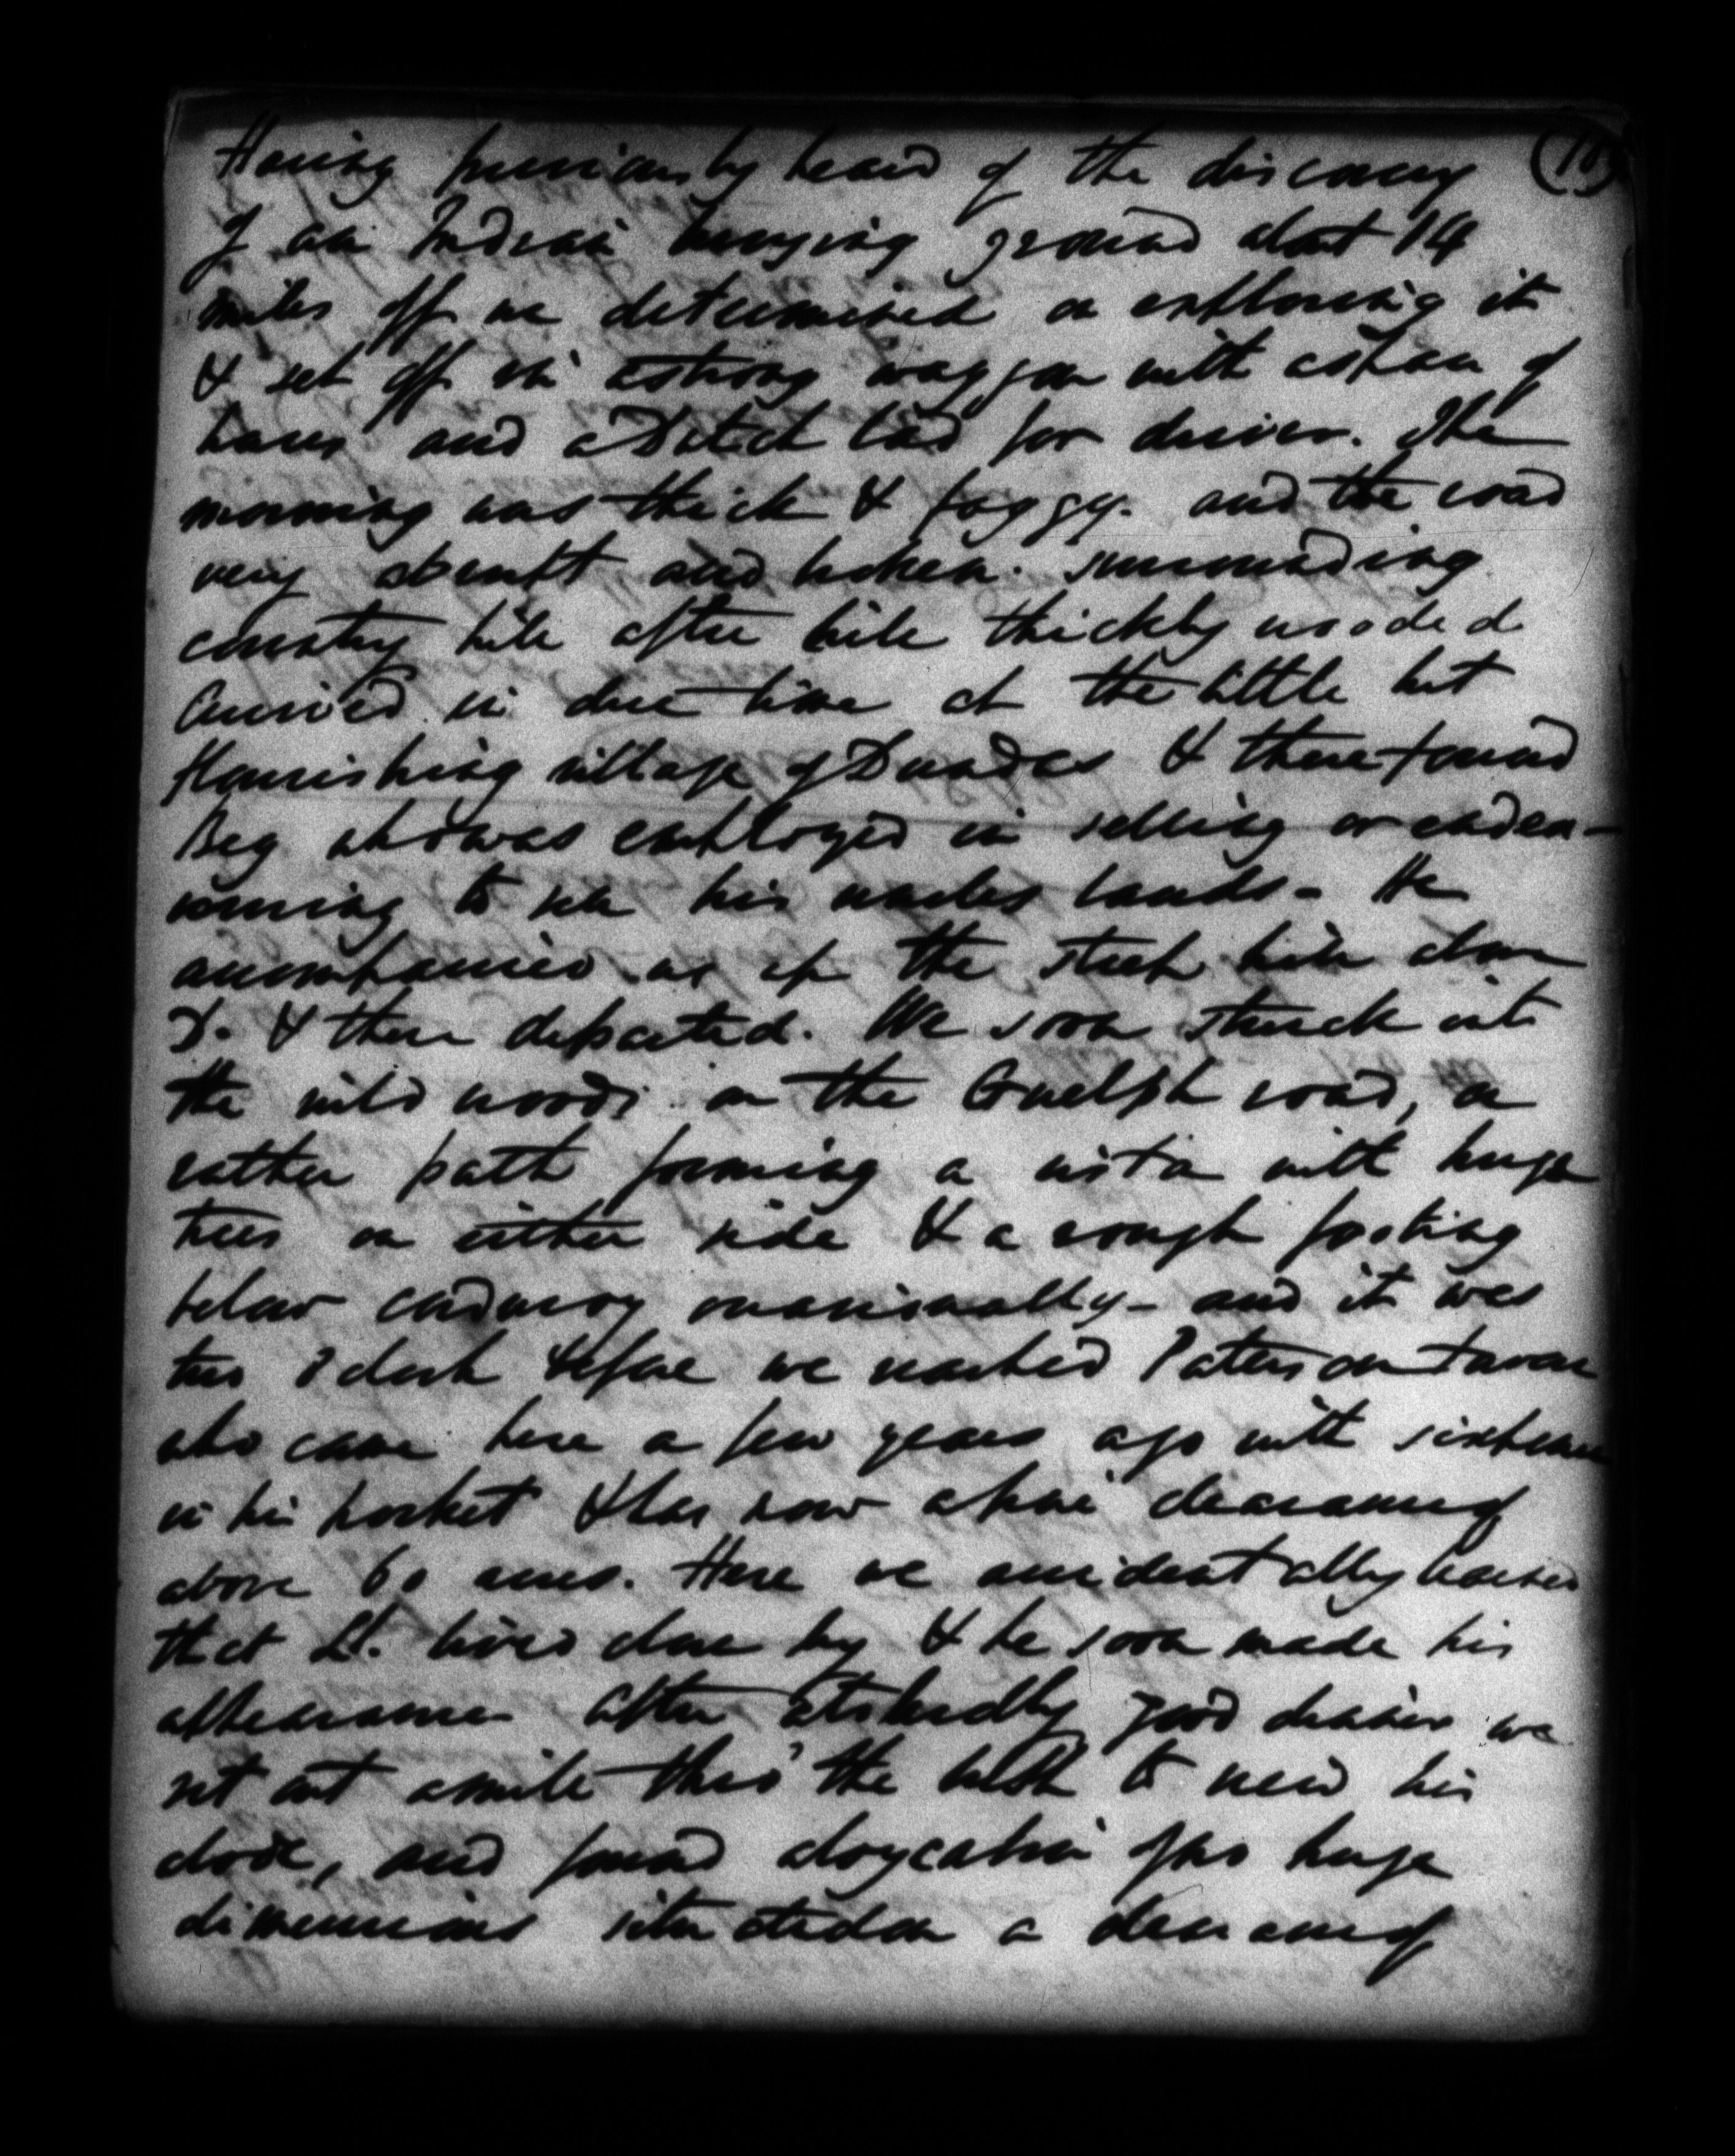 Having previously heard of the discovery
of an Indian burying ground about 14
miles off we determined on exploring it
& set off in a strong waggon with a span of
horses and a Dutch lad for driver. The
morning was thick & foggy. and the road
very abrupt and broken. surrounding
country hill after hill thickly wooded
Arrived in due time at the little but
flourishing village of Dundas & there found
Beg who was employed in selling or endea-
vouring to sell his uncles lands - He
accompanied us up the steep hill above
D. & then departed. We soon struck into
the wild woods on the Guelph road, or
rather path forming a vista with huge
trees on either side & a rough footing
below corduroy occasionally - and it was
two o'clock before we reached Paterson tavern
who came here a few years ago with sixpence
in his pocket & has now a fine clearance of
above 60 acres. Here we accidentally learned
that Lt. lived close by & he soon made his
appearance after a tolerably good dinner we
set out a mile thro' the bush to view his
abode, and found a log cabin of no huge
dimensions situated on a clearance of